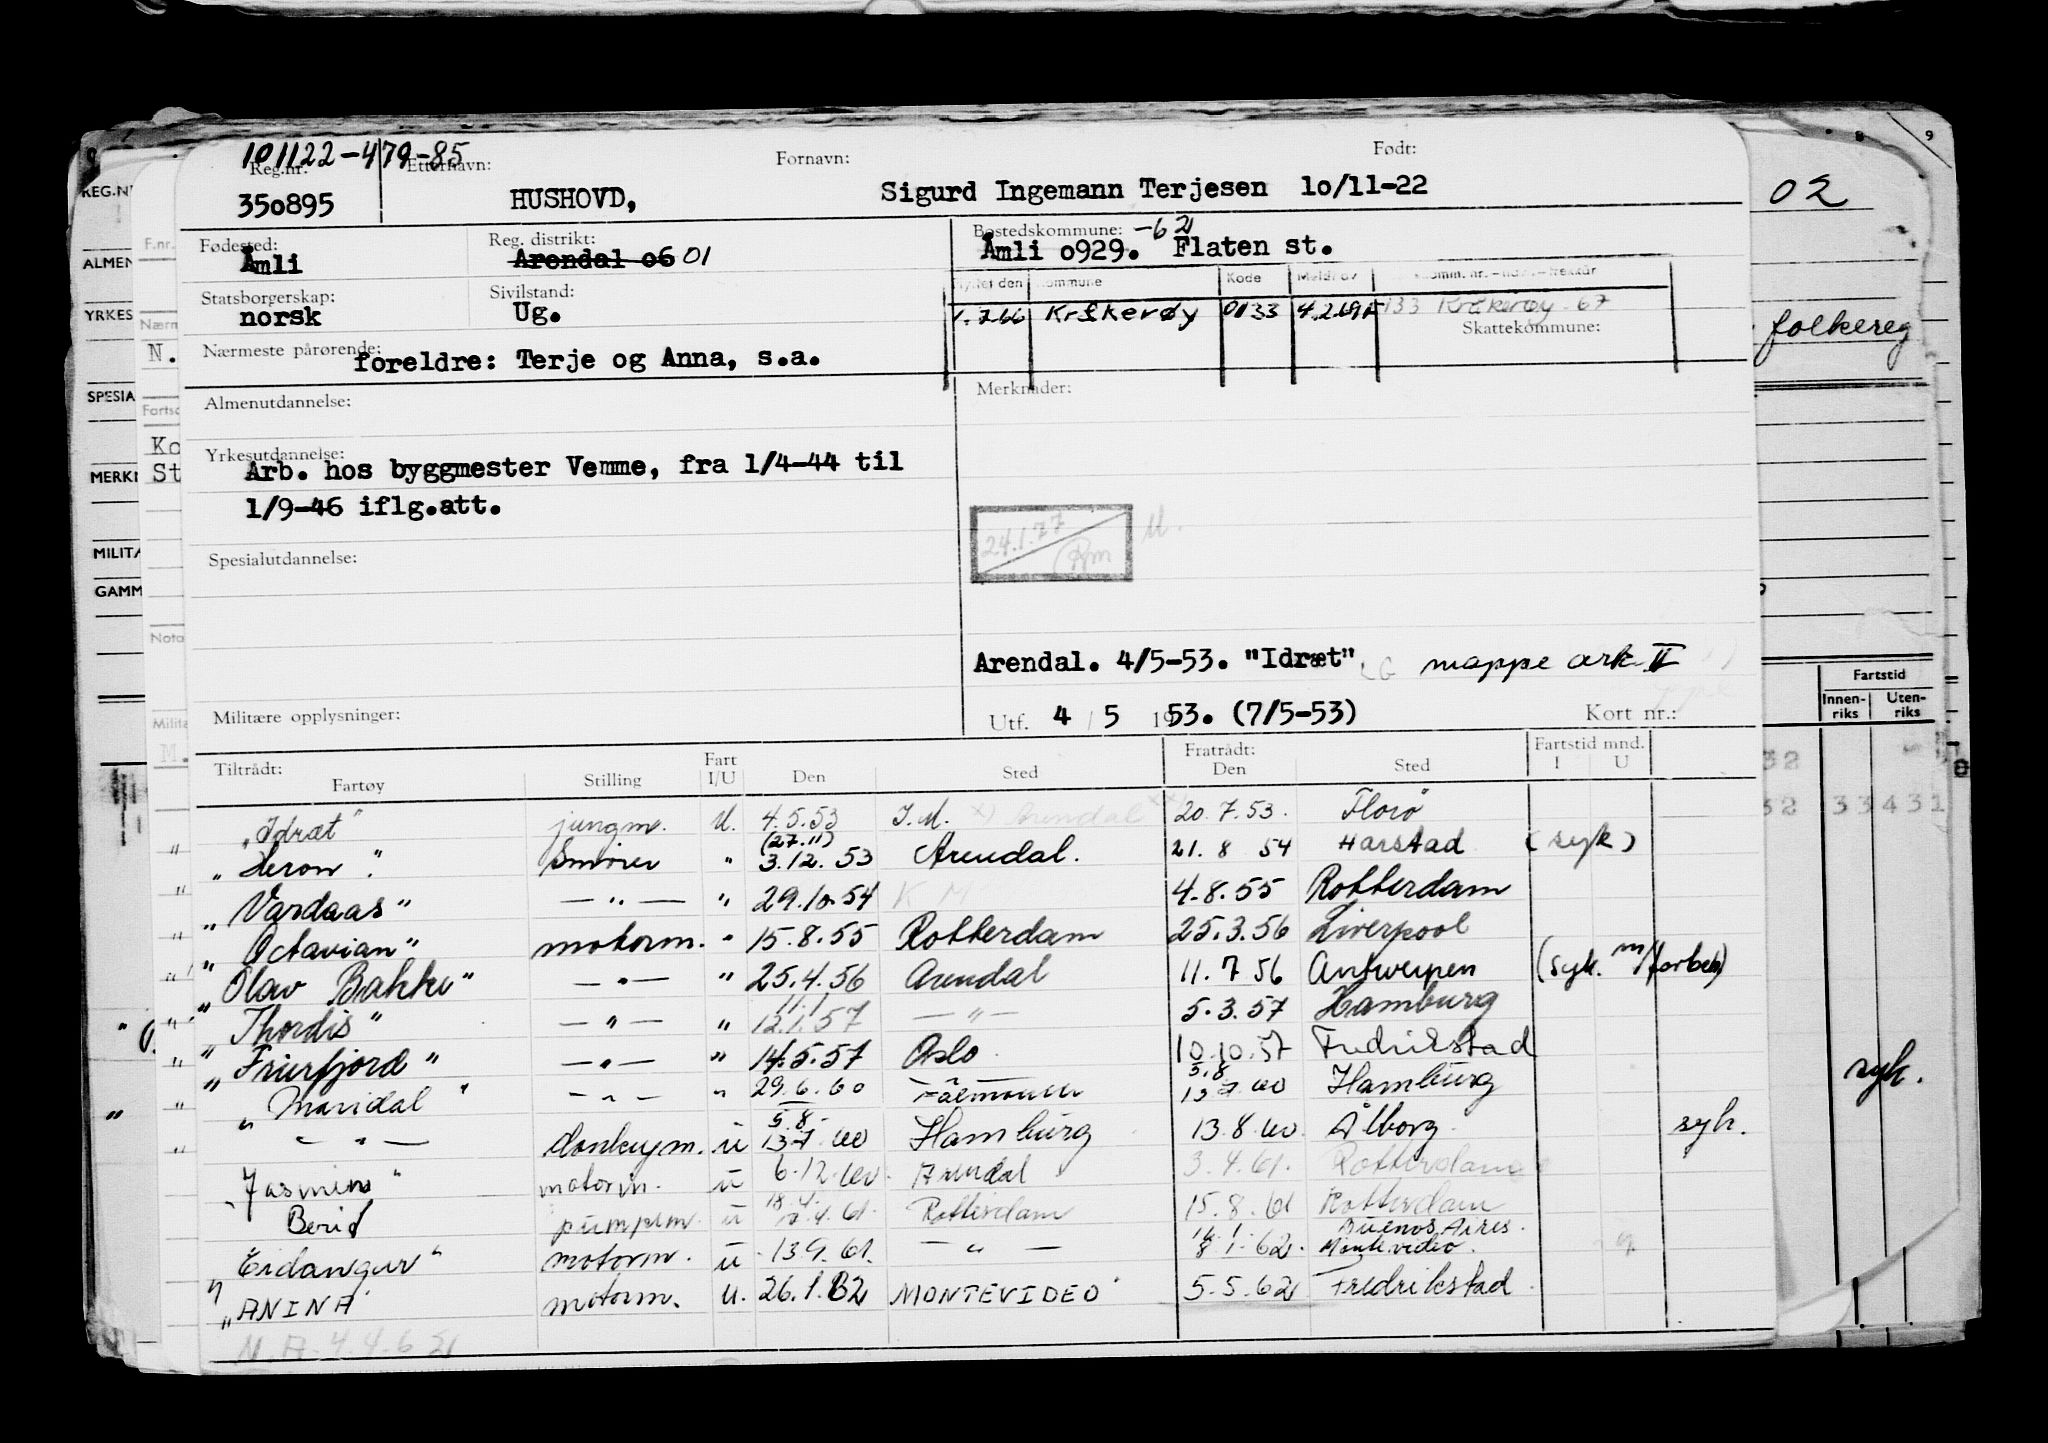 101122-479-85
Reg.nr. Etternavn: Fornavn: Født:
350895 HUSHOVD, Sigurd Ingemann Terjesen 10/11-22
Fødested: Reg. distrikt: Bostedskommune: -62
Åmli Arendal 06 01 Åmli 0929. Flaten st.
Statsborgerskap: Sivilstand: Flyttet den Kommune Kode
norsk Ug. 1.7.66 Kråkerøy 0133 133 Kråkerøy-67
Skattekommune:
Nærmeste pårørende:
foreldre: Terje og Anna, s.a.
Almenutdannelse: Merknader:
Yrkesutdannelse:
Arb. hos byggmester Vemme, fra 1/4-44 til
1/9-46 iflg.att.
24.1.77
Rm
Spesialutdannelse:
Arendal. 4/5-53. "Idræt" mappe ark II
Militære opplysninger: Utf. 4 / 5 1953. (7/5-53) Kort nr.:
Tiltrådt: Fart Fratrådt: Fartstid mnd.
Fartøy Stilling I/U Den Sted Den Sted I U
"Idræt" jungm. U. 4.5.53 I.M. x) Arendal 20.7.53. Florø
"Heron". Smører " (27.11) 3.12.53 Arendal. 21.8 54 Harstad (syk)
"Vardaas" — " — " 29.10.54 K M 4.8.55 Rotterdam
"Octavian" motorm. " 15.8.55 Rotterdam 25.3.56 Liverpool
"Olav Bakke" — " — " 25.4.56 Arendal 11.7 56 Antwerpen (syk. m/forbeh)
"Thordis" — " — " 11.1 12.1.57 — " — 5.3.57 Hamburg
"Frierfjord" — " — " 14.5.57 Oslo 10.10.57 Fredrikstad
"Maridal" — " — " 29.6.60 Falmouth 5.8 13.7 60 Hamburg
— " — donkeym. u 5.8. 13.7.60 Hamburg 13.8.60. Ålborg. syk.
"Jasmin" motorm. u 6.12.60. Arendal 3.4.61. Rotterdam
Berit pumpem. u 18.4. 61. Rotterdam 15.8.61 Rotterdam
"Eidanger" motorm. u 13.9.61. — " — 14.1. 8.1.62. Buenos Aires. Montevideo.
"ANINA" motorm. U. 26.1.62 MONTEVIDEO 5.5.62 Fredrikstad.
REG.NR
ALMEN
YRKES
SPESIA
MERKN
MILITÆ
GAMM
F.nr.
Nærm
N.
Ko
St
Nota
Milita
M.
8 9
02
folkereg
Fartstid
Innen-riks Uten-riks
32
32 33 431
syk.